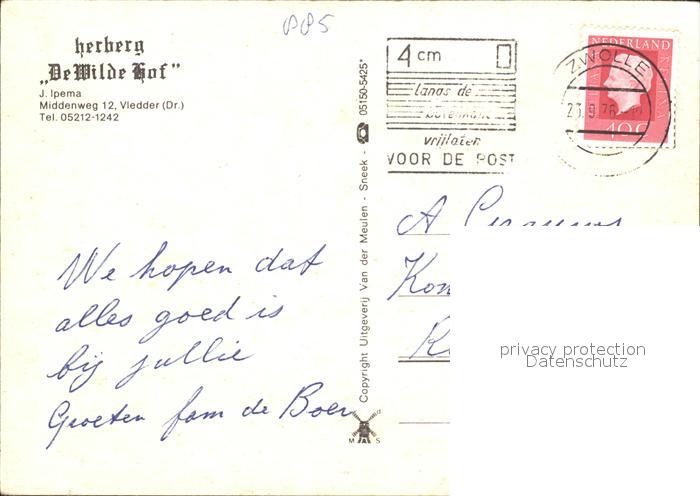 PP5
herberg
„De Wilde Hof”
J. Ipema
Middenweg 12, Vledder (Dr.)
Tel. 05212-1242
We hopen dat
alles goed is
bij jullie
Groeten fam de Boer
Copyright Uitgeverij Van der Meulen - Sneek - 05150-5425*
M S
4 cm
langs de
bovenkant
vrijlaten
VOOR DE POST
ZWOLLE
23.9.76
NEDERLAND
JULIANA REGINA
40c
A
privacy protection
Datenschutz